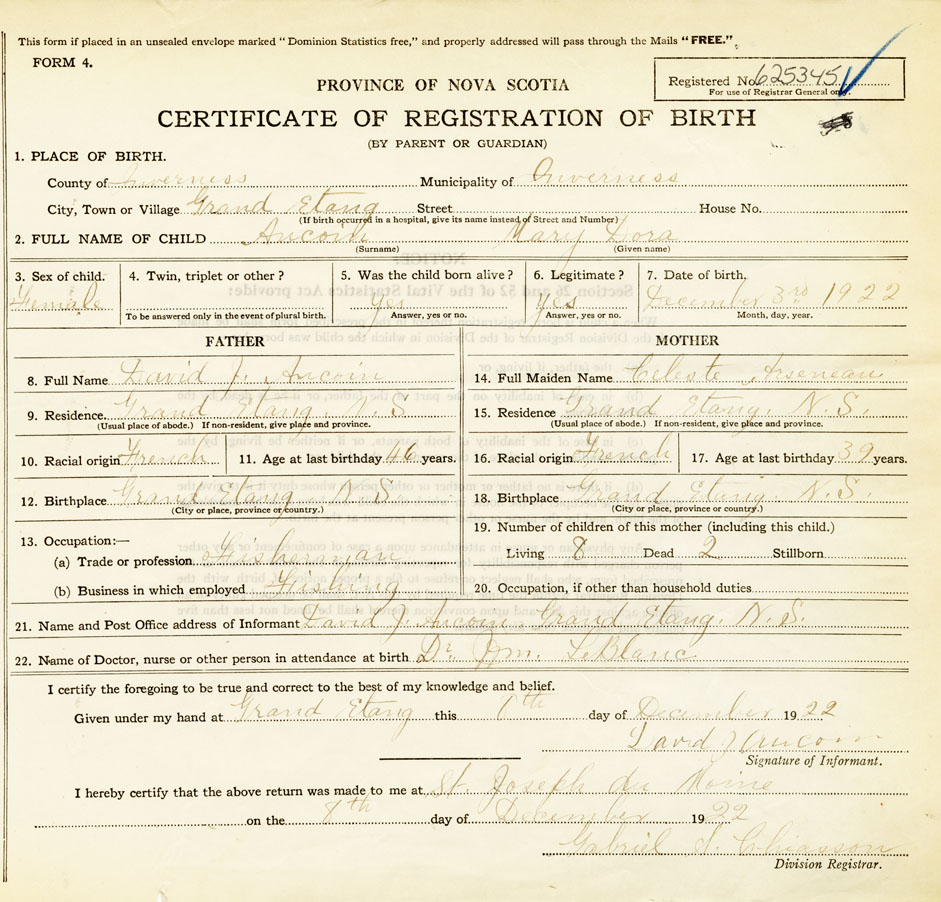 This form if placed in an unsealed envelope marked "Dominion Statistics free," and properly addressed will pass through the Mails "FREE."
FORM 4.
Registered No. 625345
For use of Registrar General only.
PROVINCE OF NOVA SCOTIA
CERTIFICATE OF REGISTRATION OF BIRTH
(BY PARENT OR GUARDIAN)
1. PLACE OF BIRTH.
County of Inverness Municipality of Inverness
City, Town or Village Grand Etang Street House No.
(If birth occurred in a hospital, give its name instead of Street and Number)
2. FULL NAME OF CHILD Aucoin Mary Dora
(Surname) (Given name)
3. Sex of child. 4. Twin, triplet or other? 5. Was the child born alive? 6. Legitimate? 7. Date of birth.
Female Yes Yes December 3rd 1922
To be answered only in the event of plural birth. Answer, yes or no. Answer, yes or no. Month, day, year.
FATHER MOTHER
8. Full Name David J. Aucoin 14. Full Maiden Name Celeste Arseneau
9. Residence Grand Etang. N.S. 15. Residence Grand Etang. N.S.
(Usual place of abode.) If non-resident, give place and province. (Usual place of abode.) If non-resident, give place and province.
10. Racial origin French 11. Age at last birthday 46 years. 16. Racial origin French 17. Age at last birthday 39 years.
12. Birthplace Grand Etang N.S. 18. Birthplace Grand Etang. N.S.
(City or place, province or country.) (City or place, province or country.)
19. Number of children of this mother (including this child.)
13. Occupation:—
(a) Trade or profession Fisherman Living 8 Dead 2 Stillborn
(b) Business in which employed Fishing 20. Occupation, if other than household duties
21. Name and Post Office address of Informant David J. Aucoin Grand Etang. N.S.
22. Name of Doctor, nurse or other person in attendance at birth Dr. Wm. LeBlanc
I certify the foregoing to be true and correct to the best of my knowledge and belief.
Given under my hand at Grand Etang this day of December 1922
David J Aucoin
Signature of Informant.
I hereby certify that the above return was made to me at St. Joseph du Moine
on the 8th day of December 1922
Gabriel Chiasson
Division Registrar.